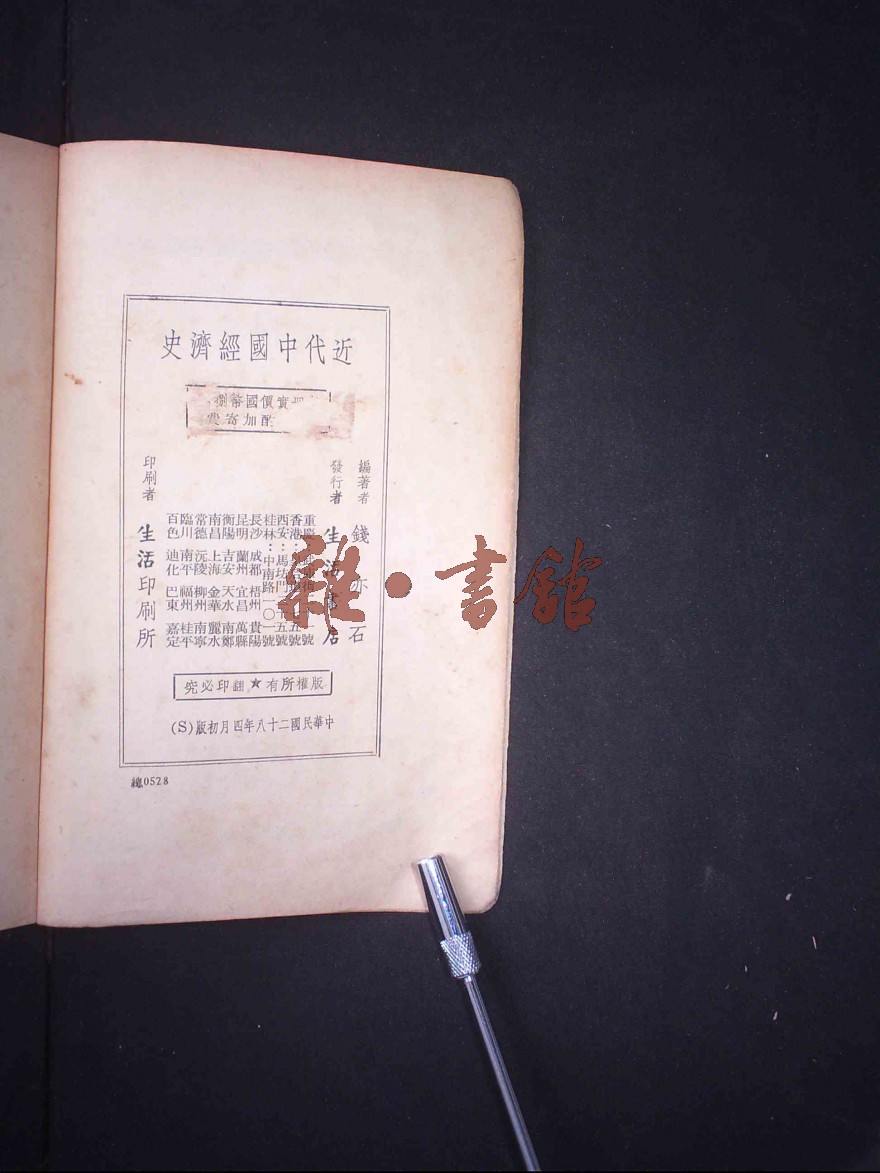 近代中國經濟史
實價國幣捌
酌加寄費
編著者 錢亦石
發行者 生活書店
重慶
香港
西安：馬坊門 號
桂林：中南路一〇一號
長沙 成都 梧州 貴陽
昆明 蘭州 宜昌 萬縣
衡陽 吉安 天水 南鄭
南昌 上海 金華 麗水
常德 沅陵 柳州 南寧
臨川 南平 福州 桂平
百色 迪化 巴東 嘉定
印刷者 生活印刷所
版權所有★翻印必究
中華民國二十八年四月初版(S)
總0528
雜·書館